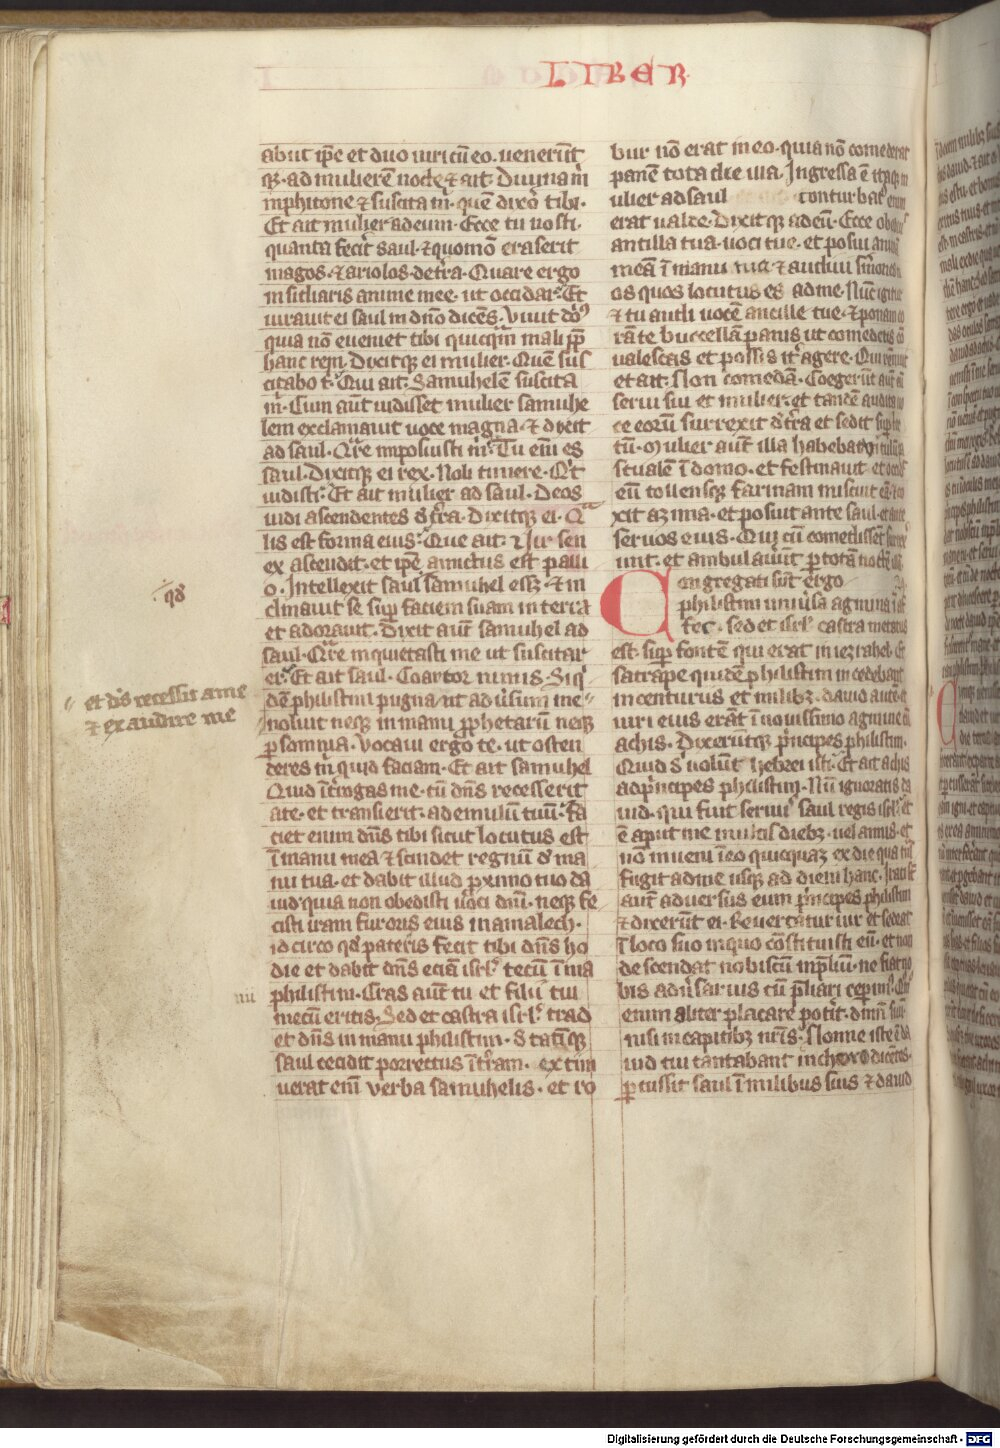 LIBER
abiit ip̄e et duo uiri cū eo · uenerūt
q̨ · ad mulierē nocte ⁊ ait · Diuina m̄
in phitone ⁊ suscita m̄ · quē dixō tibi ·
Et ait mulier ad eum · Ecce tu nosti ·
quanta fecit saul · ⁊ quomō eraserit
magos · ⁊ ariolos · de t̄ra · Quare ergo
insidiaris anime mee · ut occidar · Et
iurauit ei saul in dn̄o dicēs · Viuit dn̄s
quia nō eueniet tibi quicq̄m mali ꝓp̄
hanc rem · Dixitq̨ ei mulier · Quē sus
citabo t · Qui ait · Samuhelē suscita
m̄ · Cum aūt uidisset mulier samuhe
lem exclamauit uoce magna · ⁊ dixit
ad saul · Qr̄e imposuisti m̄ · Tu eni es
saul · Dixitq̨ ei rex · Noli timere · Qⁱd
uidisti · Et ait mulier ad saul · Deos
uidi ascendentes d̄ t̄ra · Dixitq̨ ei · Qᵃ
lis est forma eius · Que ait · Vir sen
ex ascendit · et ip̄e amictus est palli
o · Intellexit saul samuhel eēꝫ · ⁊ in
clinauit se suꝑ faciem suam in terra
et adorauit · Dixit aūt samuhel ad
saul · Qr̄e inquietasti me ut suscitar
er · Et ait saul · Coartor nimis · Siq̄
dē philistiim pugnāt ad ūsum me
et dn̄s recessit a me
⁊ exaudire me
noluit neq̨ in manu ꝓphetarū neq̨
ꝑ somnia · Vocaui ergo te · ut osten
deres m̄ quid faciam · Et ait samuhel
Quid īt̄rogas me · cū dn̄s recesserit
a te · et transierit · ad emulū tuū · Fa
ciet enim dn̄s tibi sicut locutus est
ī manu mea ⁊ scindet regnū d̄ ma
nu tua · et dabit illud ꝓximo tuo da
uid · quia non obedisti uoci dn̄i · neq̨ fe
cisti iram furoris eius in amalech ·
id circo qd̄ pateris fecit tibi dn̄s ho
die et dabit dn̄s eciā isr̄l · tecū ī ma
philistiim · Cras aūt tu et filii tui
mecū eritis · Sed et castra isr̄l · trad
et dn̄s in manu philistiim · Statīq̨
saul cecidit porrectus ī t̄ram · extim
uerat enī uerba samuhelis · et ro
qd̄
nu
bur nō erat in eo · quia nō comederat
panē tota die illa · Ingressa ē itaq̨ m
ulier ad saul conturbatꝰ enim
erat ualde · Dixitq̨ ad eū · Ecce obediuit
ancilla tua uoci tue · et posui animā
meā ī manu mea ⁊ audiui sermones
os quos locutus es ad me · Nūc igitur
⁊ tu audi uocē ancille tue · ⁊ ponam co
rā te buccellā panis ut comedens cō
ualescas et possis iter agere · Qui rennuit
et ait · Non comedā · Coegerūt aūt eū
serui sui et mulier · et tandē audita uo
ce eorū surrexit d̄ t̄ra et sedit suꝑ lec
tū · Mulier aūt illa habebat uitulū pa
scualē ī domo · et festinauit et occidit
eū tollensq̨ farinam miscuit eā · ⁊ co
xit azima · et posuit ante saul · et ante
seruos eius · Qui cū comedissent surrex
unt · et ambulauūt ꝑ totā noctē illā ·
Congregati sūt ergo
philistiim uniūsa agmina ī af
fec · sed et isr̄l castra metatus
est suꝑ fontē qui erat in iezrahel · Et
satrape quidē philistiim incedebant
in centuriis et milibꝫ · dauid autē ⁊
uiri eius erāt ī nouissimo agmine cū
achis · Dixerūtq̨ p̄ncipes philistiim ·
Quid s̄ uolūt hebrei isti · Et ait achis
ad p̄ncipes philistiim · Nū ignoratis da
uid · qui fuit seruus saul regis isr̄l · et
ē aput me multis diebꝫ · uel annis · et
nō inueni ī eo quicquaꝫ ex die qua trās
fugit ad me usq̨ ad diem hanc · Irati sūt
aūt aduersus eum p̄ncipes philistiim
⁊ dixerūt ei · Reuertatur uir et sedeat
ī loco suo in quo cōstituisti eū · et non
descendat nobiscū in p̄lium · ne fiat no
bis ad ūsarius cū p̄liari ceperimꝰ · Qūo
enim aliter placare pot̄it · dn̄m suū ·
nisi in capitibꝫ nr̄is · Nonne iste ē da
uid cui cantabant in choro dicētes ·
ꝑcussit saul ī milibus suis ⁊ dauid
Digitalisierung gefördert durch die Deutsche Forschungsgemeinschaft - DFG